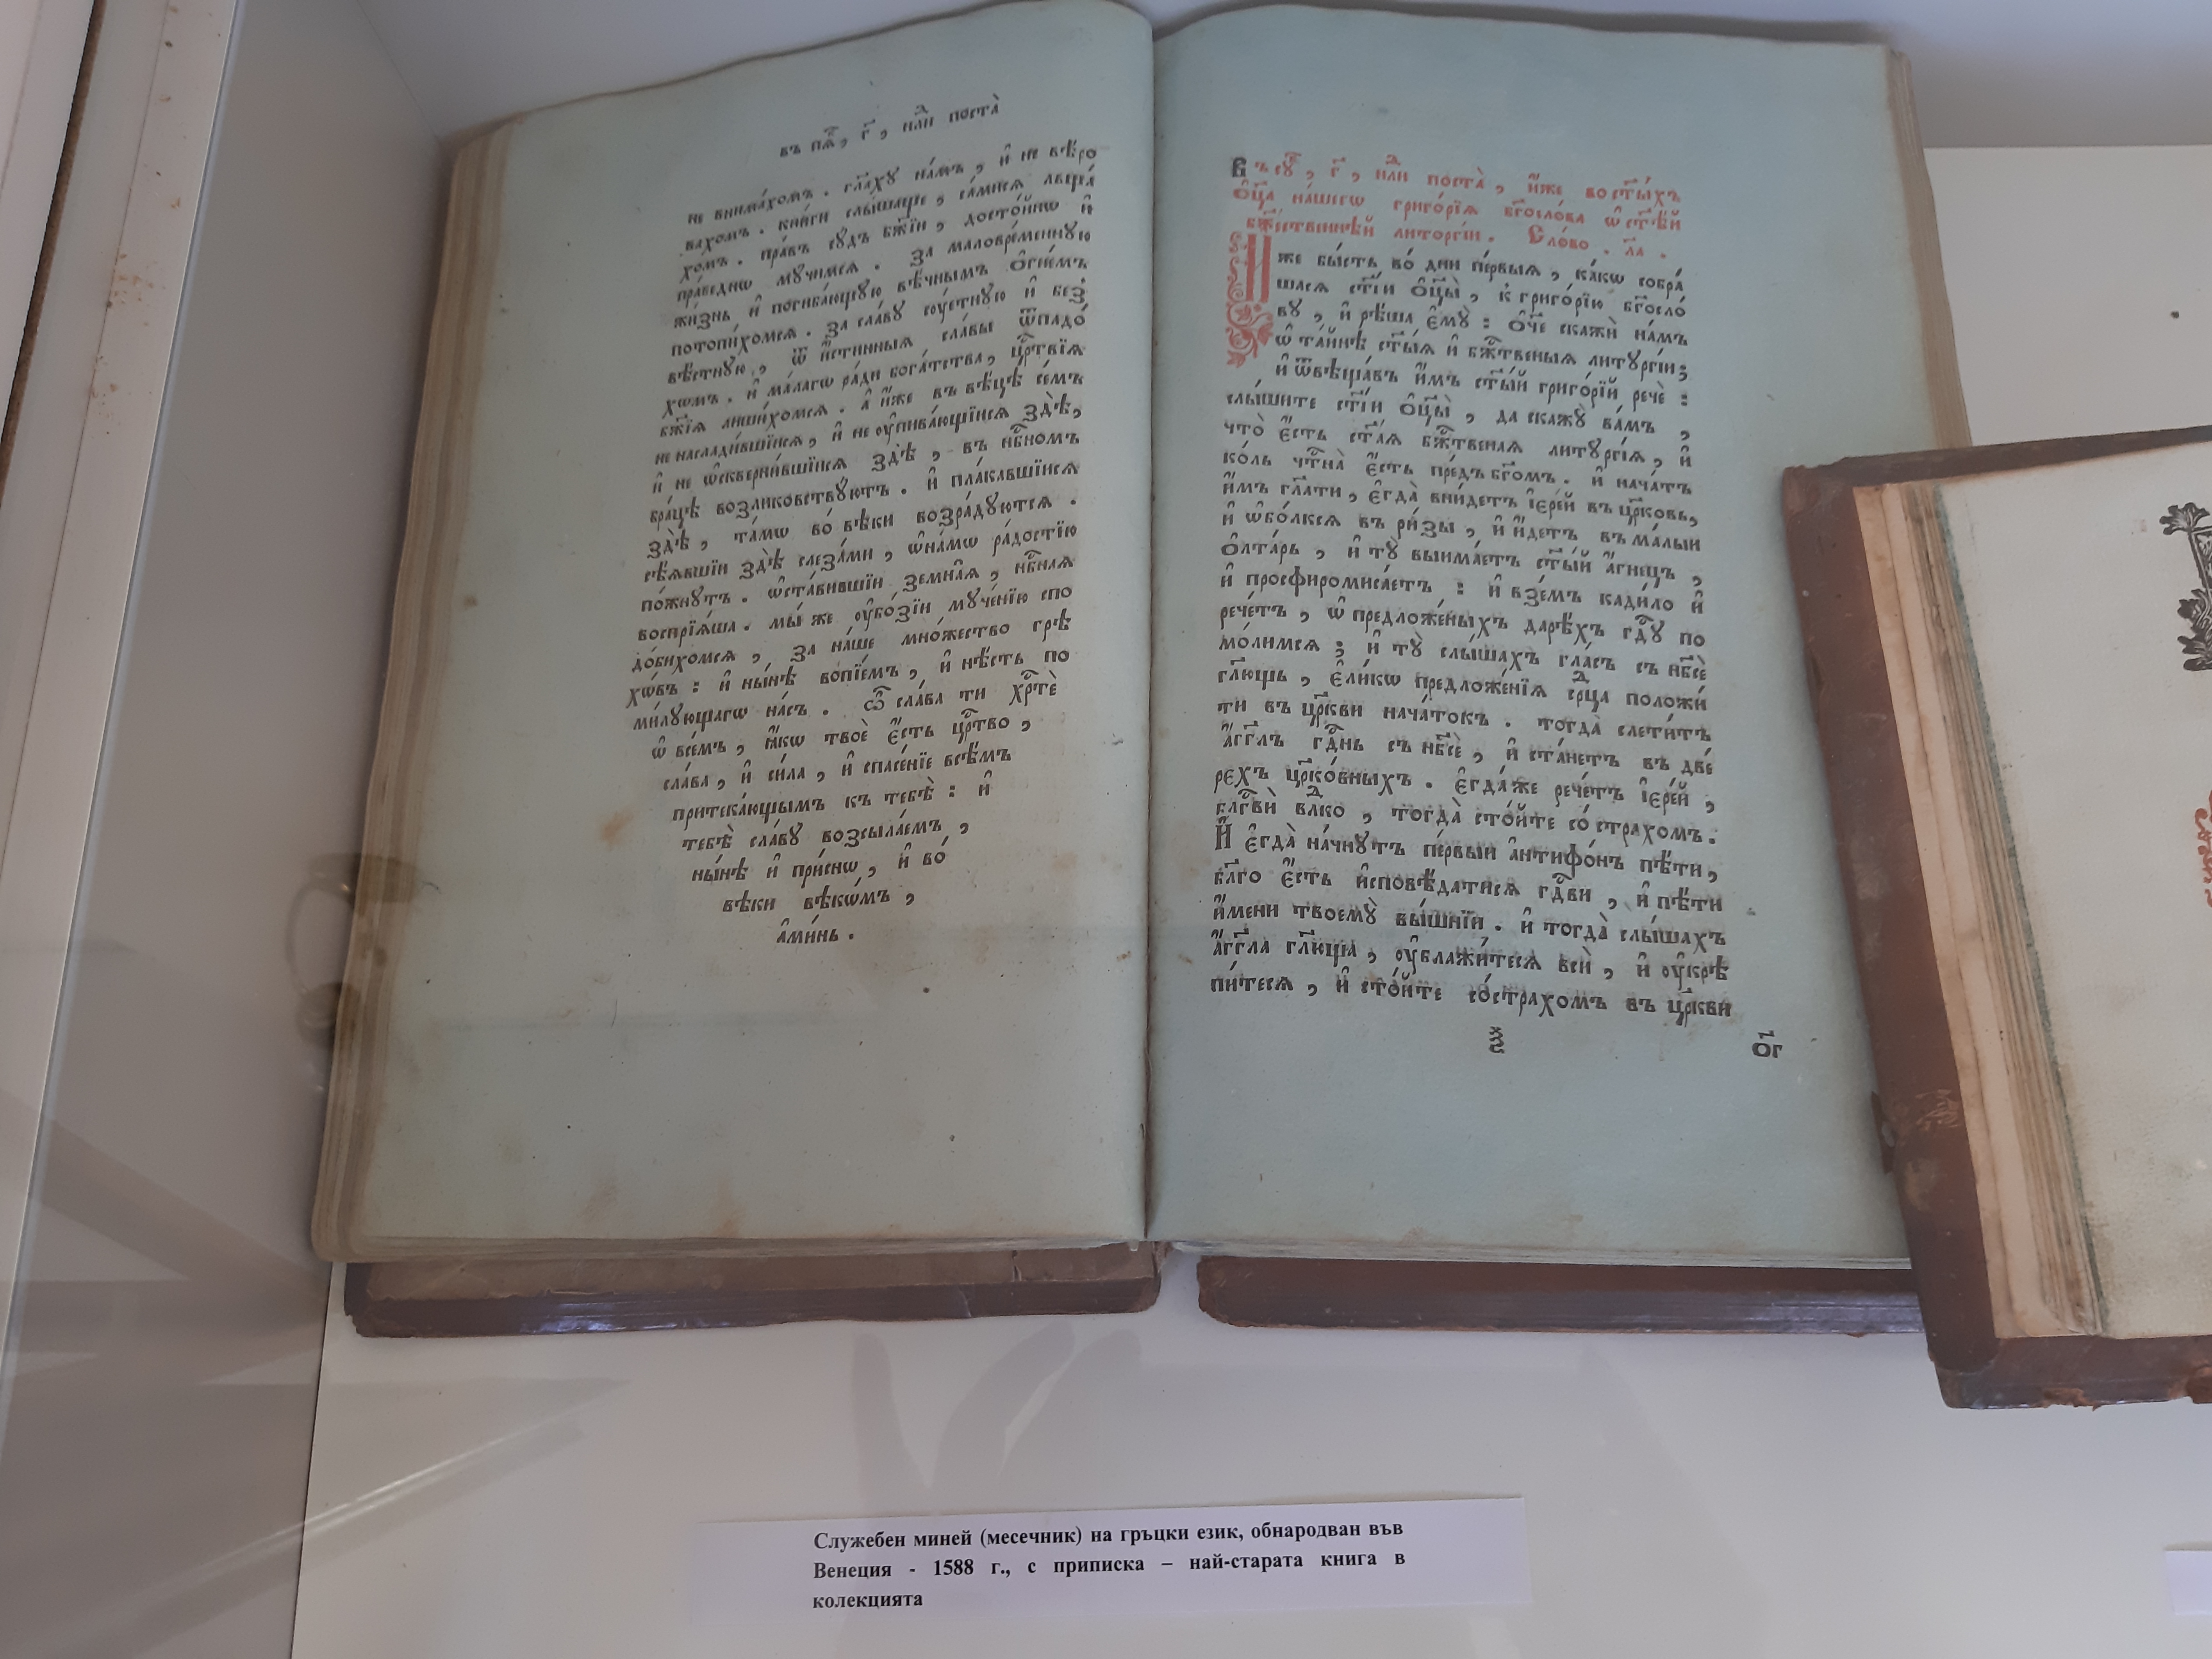 въ пѧ҃, г҃, нлⷣи поста̀
не внима́хомъ . гл҃аху на́мъ , и҆ не вѣ́ро
вахомъ . кни́ги слы́шаще , са́мися льща́
хомъ . пра́въ су́дъ бж҃їи , досто́йнѡ и҆
пра́веднѡ мꙋ́чимсѧ . за маловре́меннꙋю
жи́знь и҆ погиба́ющꙋю вѣ́чнымъ ѻ҆гне́мъ
потопи́хомсѧ . за сла́вꙋ сꙋ́етнꙋю и҆ без̾
вѣ́стнꙋю , ѿ и҆́стинныѧ сла́вы ѿпадо́
хѡмъ . и҆ ма́лагѡ ра́ди бога́тства , црⷭ҇твїѧ
бж҃їѧ лиши́хомсѧ . а҆ и҆́же въ вѣ́цѣ се́мъ
не наслади́вшїисѧ , и҆ не ᲂу҆пива́ющїисѧ здѣ̀ ,
и҆ не ѡ҆скверни́вшїисѧ здѣ̀ , въ нбⷭ҇номъ
бра́цѣ возликовствꙋютъ . и҆ пла́кавшїисѧ
здѣ̀ , та́мѡ во́ вѣки возра́дꙋютсѧ .
сѣ́ѧвшїи здѣ̀ слеза́ми , ѡ҆на́мѡ ра́достїю
по́жнꙋтъ . ѡ҆ста́вившїи земна̑ѧ , нбⷭ҇наѧ
воспрїѧ́ша . мы́ же ᲂу҆бо́зїи мꙋче́нїю спо
до́бихомсѧ , за на́ше мно́жество грѣ
хѡ́въ : и҆ ны́нѣ вопїе́мъ , и҆ нѣ́сть по
ми́лꙋющагѡ на́съ . ѽ сла́ва ти хрⷭ҇тѐ
ѡ҆ все́мъ , ꙗ҆́кѡ твоѐ є҆́сть црⷭ҇тво ,
сла́ва , и҆ си́ла , и҆ спасе́нїе всѣ́мъ
притека́ющымъ къ тебѣ̀ : и҆
тебѣ̀ сла́вꙋ возсыла́емъ ,
ны́нѣ и҆ при́снѡ , и҆ во́
вѣки вѣкѡ́мъ ,
а҆ми́нь .
Въ сꙋ҃, г҃, нлⷣи поста̀ , и҆́же во ст҃ы́хъ
ѻ҆ц҃а на́шегѡ григо́рїѧ бг҃осло́ва ѡ҆ ст҃ѣ́й
бж҃е́ственнѣй литорги́и . Сло́во . л҃а .
И҆́же бы́сть во́ дни пе́рвыѧ , ка́кѡ собра́
шасѧ ст҃і́и ѻ҆ц҃ы̀ , к̾ григо́рїю бг҃осло́
вꙋ , и҆ рѣ́ша є҆мꙋ̀ : ѻ҆́ч҃е скажѝ на́мъ
ѡ҆ та́йнѣ ст҃ы́ѧ и҆ бжⷭ҇твеныѧ литꙋргі́и ;
и҆ ѿвѣща́въ и҆́мъ ст҃ы́й григо́рїй речѐ :
слы́шите ст҃і́и ѻ҆ц҃ы̀ , да скажꙋ̀ ва́мъ ,
что̀ є҆́сть ст҃а́ѧ бжⷭ҇твенаѧ литꙋргі́ѧ , и҆
ко́ль чтⷭ҇на̀ є҆́сть пре́дъ бг҃омъ . и҆ нача́тъ
и҆̀мъ гл҃ати , є҆гда̀ вни́детъ і҆ере́й въ цр҃ковь ,
и҆ ѡ҆бо́лксѧ въ ри́зы , и҆ и҆́детъ въ ма́лый
ѻ҆лта́рь , и҆ тꙋ̀ вынима́етъ ст҃ы́й а҆́гнецъ ,
и҆ просфиромиса́етъ : и҆ взе́мъ кади́ло и҆
рече́тъ , ѡ҆ предложе́ныхъ дарѣ́хъ гдⷭ҇ꙋ по
мо́лимсѧ ; и҆ тꙋ̀ слы́шахъ гла́съ съ нб҃сѐ
гл҃ющь , є҆ли́кѡ предложе́нїѧ срⷣца положи́
ти въ цр҃кви нача́токъ . тогда̀ слети́тъ
а҆́гг҃лъ гдⷭ҇нь съ нб҃сѐ , и҆ ста́нетъ въ две́
рехъ цр҃ко́вныхъ . є҆гда́же рече́тъ і҆ере́й ,
блгⷭ҇вѝ влⷣко , тогда̀ сто́йте со́ страхомъ .
И҆ є҆гда̀ на́чнꙋтъ пе́рвый а҆нтифо́нъ пѣ́ти ,
бл҃го є҆́сть и҆сповѣ́датисѧ гдⷭ҇ви , и҆ пѣ́ти
и҆́мени твоемꙋ̀ вы́шнїи . и҆ тогда̀ слы́шахъ
а҆́гг҃ла гл҃юща , ᲂу҆блажи́тесѧ всѝ , и҆ ᲂу҆крѣ
пи́тесѧ , и҆ сто́йте со́страхомъ въ цр҃кви
ѯ
ѻ҃г
Служебен миней (месечник) на гръцки език, обнародван във
Венеция - 1588 г., с приписка – най-старата книга в
колекцията